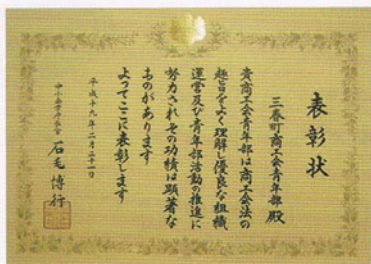 表彰状
三春町商工会青年部殿
貴商工会青年部は商工会法の
趣旨をよく理解し優良な組織
運営及び青年部活動の推進に
努力されその功績は顕著な
ものがあります
よってここに表彰します
平成十九年二月二十一日
中小企業庁長官 石毛博行